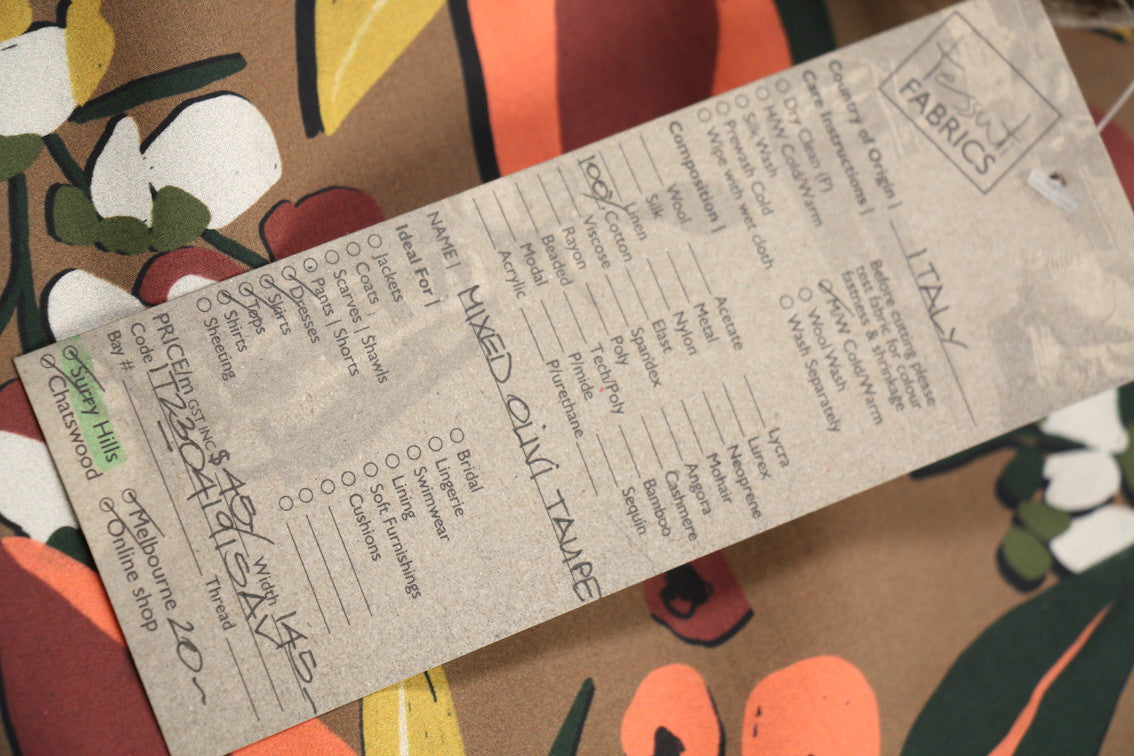 Tessuti
FABRICS
Country of Origin | ITALY
Care Instructions |
Before cutting please
test fabric for colour
fastness & shrinkage
Dry Clean (P)
H/W Cold/Warm
Silk Wash
Prewash Cold
Wipe with wet cloth
M/W Cold/Warm
Wool Wash
Wash Separately
Composition |
Wool
Silk
Linen
100% Cotton
Viscose
Rayon
Beaded
Modal
Acrylic
Acetate
Metal
Nylon
Elast
Spandex
Poly
Tech/Poly
P/mide
P/urethane
Lycra
Lurex
Neoprene
Mohair
Angora
Cashmere
Bamboo
Sequin
NAME | MIXED OLIVI TAUPE
Ideal For |
Jackets
Coats
Scarves | Shawls
Pants | Shorts
Dresses
Skirts
Tops
Shirts
Sheeting
Bridal
Lingerie
Swimwear
Lining
Soft Furnishings
Cushions
PRICE/m GST INC $ 49/ Width 145-
Code
Bay # Thread
Surry Hills
Chatswood
Melbourne 20~
Online shop